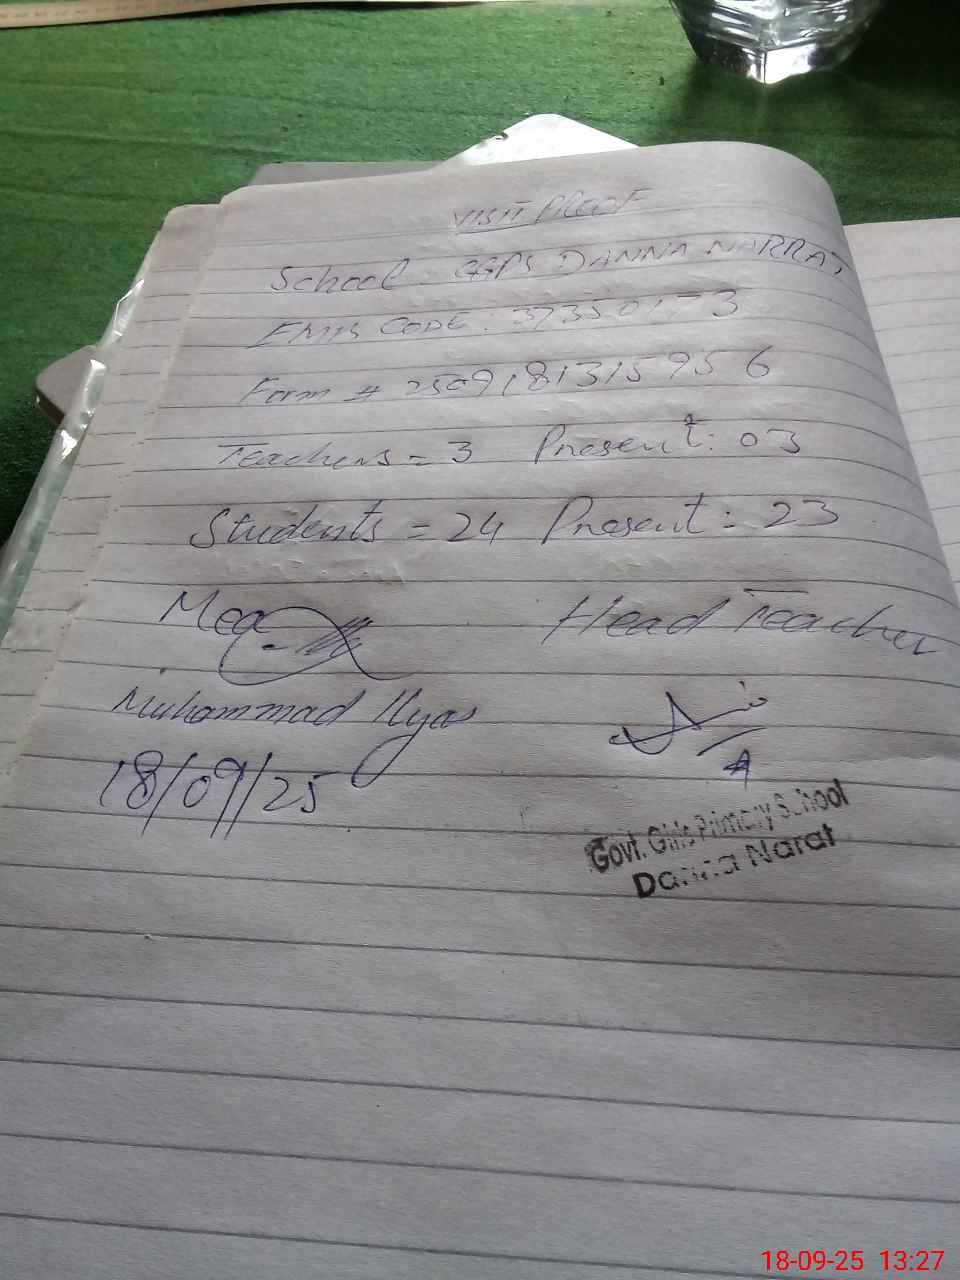 VISIT PROOF
School: GGPS DANNA NARRAT
EMIS CODE: 37350173
Form # 2509181315956
Teachers = 3 Present: 03
Students = 24 Present: 23
Mea Head Teacher
Muhammad Ilyas
18/09/25
Govt. Girls Primary School
Danna Narat
18-09-25 13:27